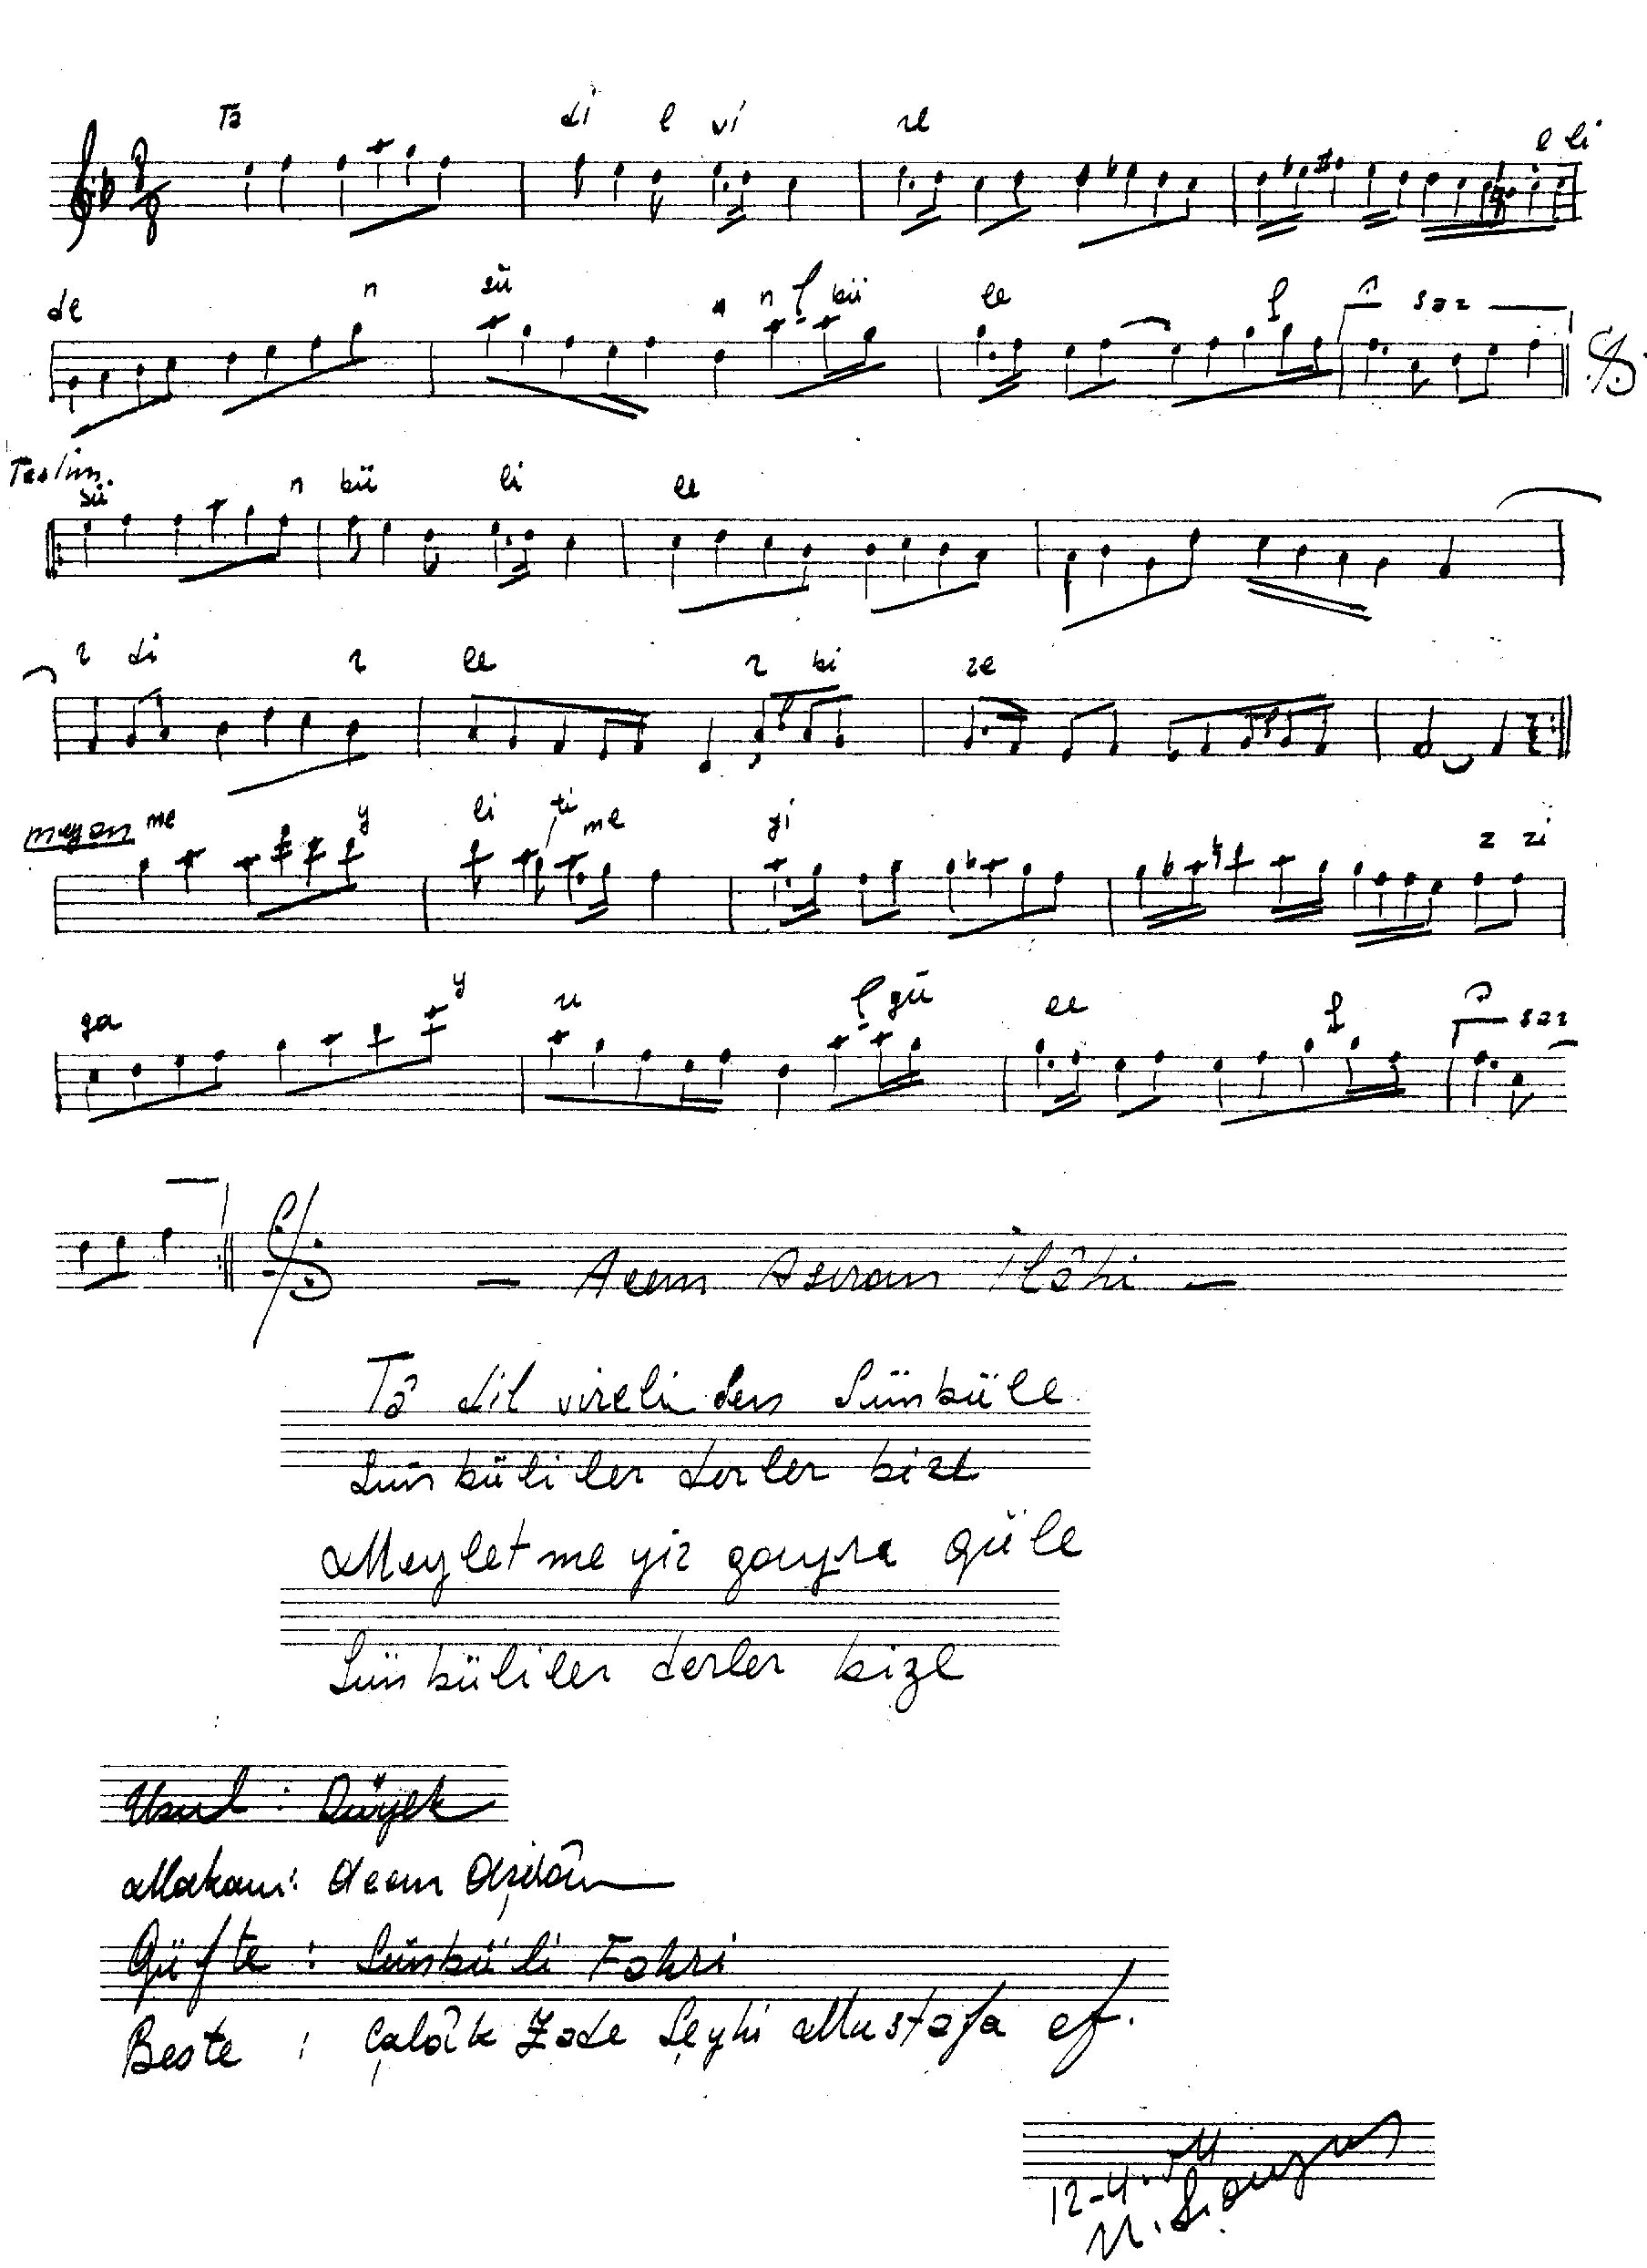 Tâ di l vi re e li
de n sü n n bü le
saz
Teslim.
sü n bü li le
r di r le r bi ze
meyan me y li ti me yi z zi
ga y rı gü le
saz
— Acem Aşıran İlâhi —
Tâ dil vireliden Sünbüle
Sünbüliler derler bize
Meyletmeyiz gayrı güle
Sünbüliler derler bize
Usul : Düyek
Makam: Acem Aşirân
Güfte : Sünbüli Fahri
Beste : Çalâk Zade Şeyhi Mustafa ef.
12-4-